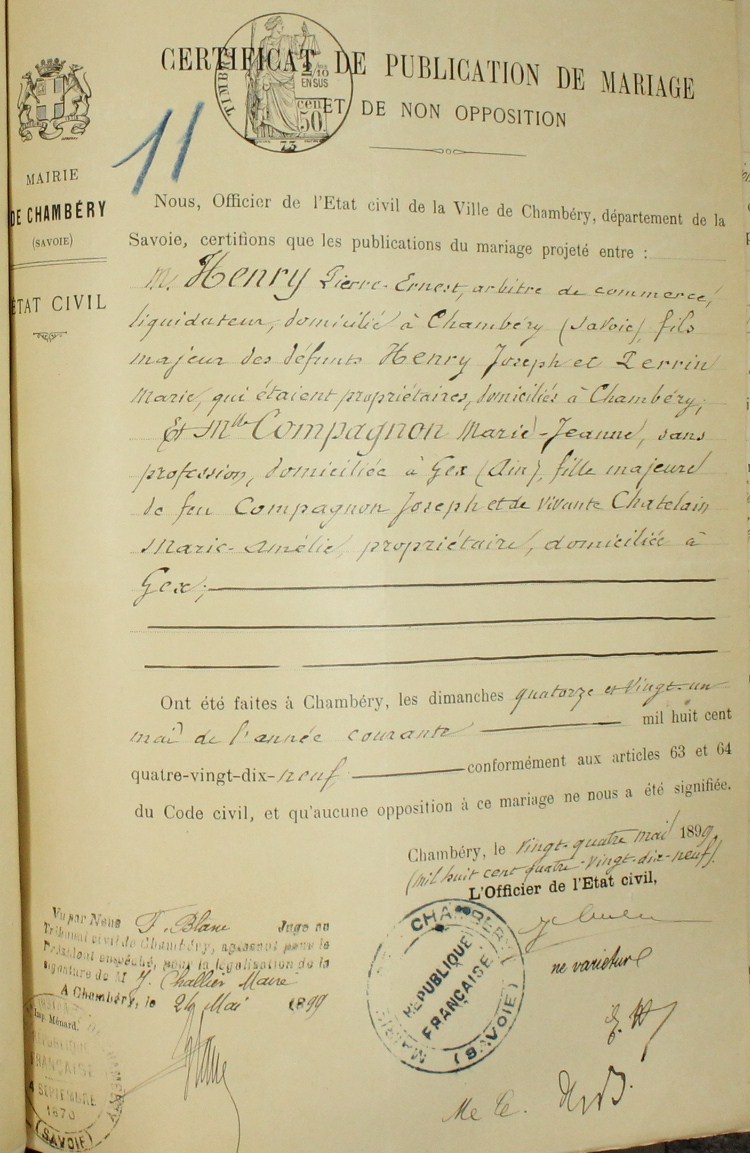 CERTIFICAT DE PUBLICATION DE MARIAGE
ET DE NON OPPOSITION
TIMBRE
2/10
EN SUS
cen
50
73
11
MAIRIE
DE CHAMBÉRY
(SAVOIE)
ÉTAT CIVIL
Nous, Officier de l'Etat civil de la Ville de Chambéry, département de la
Savoie, certifions que les publications du mariage projeté entre :
Mr Henry Pierre-Ernest, arbitre de commerce,
liquidateur, domicilié à Chambéry (Savoie), fils
majeur des défunts Henry Joseph et Perrin
Marie, qui étaient propriétaires, domiciliés à Chambéry;
Et Mlle Compagnon Marie-Jeanne, sans
profession, domiciliée à Gex (Ain), fille majeure
de feu Compagnon Joseph et de vivante Chatelain
Marie-Amélie, propriétaire, domiciliée à
Gex;
Ont été faites à Chambéry, les dimanches quatorze et vingt-un
mai de l'année courante mil huit cent
quatre-vingt-dix-neuf conformément aux articles 63 et 64
du Code civil, et qu'aucune opposition à ce mariage ne nous a été signifiée.
Chambéry, le vingt-quatre mai 1899
(mil huit cent quatre-vingt-dix-neuf).
L'Officier de l'Etat civil,
ne varietur
Vu par Nous F. Blanc Juge au
Tribunal civil de Chambéry, agissant pour le
Président empêché, pour la légalisation de la
signature de M J. Challier Maire
A Chambéry, le 24 Mai 1899
Imp. Ménard.
MAIRIE DE CHAMBERY
RÉPUBLIQUE
FRANÇAISE
(SAVOIE)
RÉPUBLIQUE
FRANÇAISE
4 SEPTEMBRE
1870
(SAVOIE)